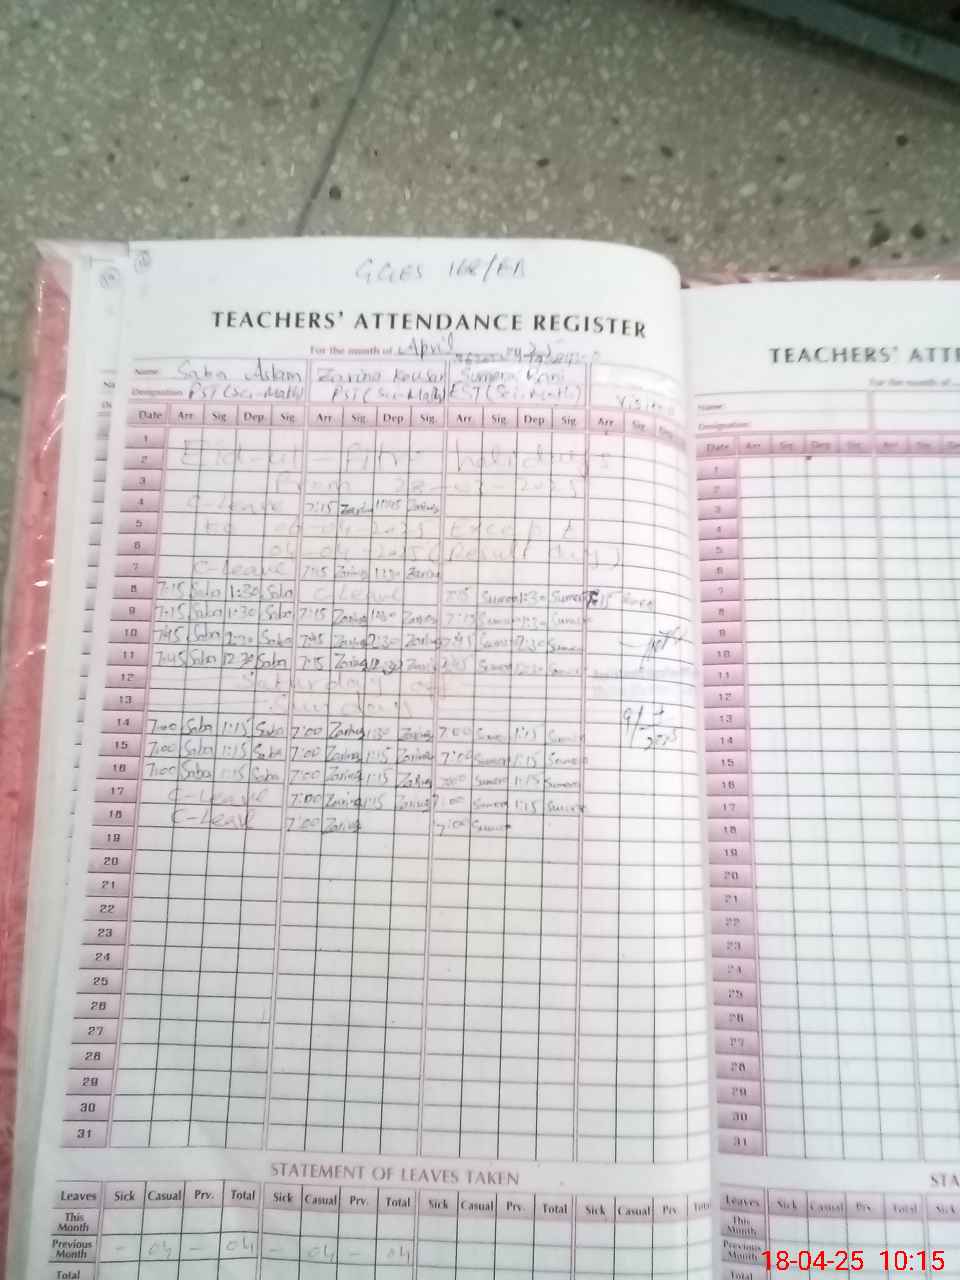 GGES 168/EB
TEACHERS' ATTENDANCE REGISTER
For the month of April
Name Saba Aslam Zarina Kousar Sumera Rani
Designation PST (Sci-Math) PST (Sci-Math) EST (Sci-Math)
Date Arr. Sig. Dep. Sig. Arr. Sig. Dep. Sig. Arr. Sig. Dep. Sig. Arr. Sig.
1
2 Eid-ul-Fitr holidays
3 From 28-03-2025
4 C-Leave 7:15 Zarina Zarina
5 to 06-04-2025 Except
6 04-04-2025 (Result day)
7 C-Leave 7:45 Zarina Zarina
8 7:15 Saba 1:30 Saba C-Leave 7:15 Sumera 1:30 Sumera 7:15
9 7:15 Saba 1:30 Saba 7:15 Zarina 1:30 Zarina 7:15 Sumera 1:30 Sumera
10 7:45 Saba Saba 7:45 Zarina Zarina 7:45 Sumera Sumera
11 7:45 Saba 12:30 Saba 7:15 Zarina 12:30 Zarina 7:45 Sumera Sumera
12 Saturday off
13 Sunday
14 7:00 Saba 1:15 Saba 7:00 Zarina 1:30 Zarina 7:00 Sumera 1:15 Sumera
15 7:00 Saba 1:15 Saba 7:00 Zarina 1:15 Zarina 7:00 Sumera 1:15 Sumera
16 7:00 Saba 1:15 Saba 7:00 Zarina 1:15 Zarina 7:00 Sumera 1:15 Sumera
17 C-Leave 7:00 Zarina 1:15 Zarina 7:00 Sumera 1:15 Sumera
18 C-Leave 7:00 Zarina 7:00 Sumera
19
20
21
22
23
24
25
26
27
28
29
30
31
STATEMENT OF LEAVES TAKEN
Leaves Sick Casual Prv. Total Sick Casual Prv. Total Sick Casual Prv. Total Sick Casual Prv. Total
This Month
Previous Month - 04 - 04 - 04 - 04
Total
TEACHERS' ATTE
For the month of
Name:
Designation:
Date Arr. Sig. Dep. Sig. Arr. Sig. Dep. Sig.
1
2
3
4
5
6
7
8
9
10
11
12
13
14
15
16
17
18
19
20
21
22
23
24
25
26
27
28
29
30
31
STA
Leaves Sick Casual Prv. Total Sick
This Month
Previous Month
Total
18-04-25 10:15